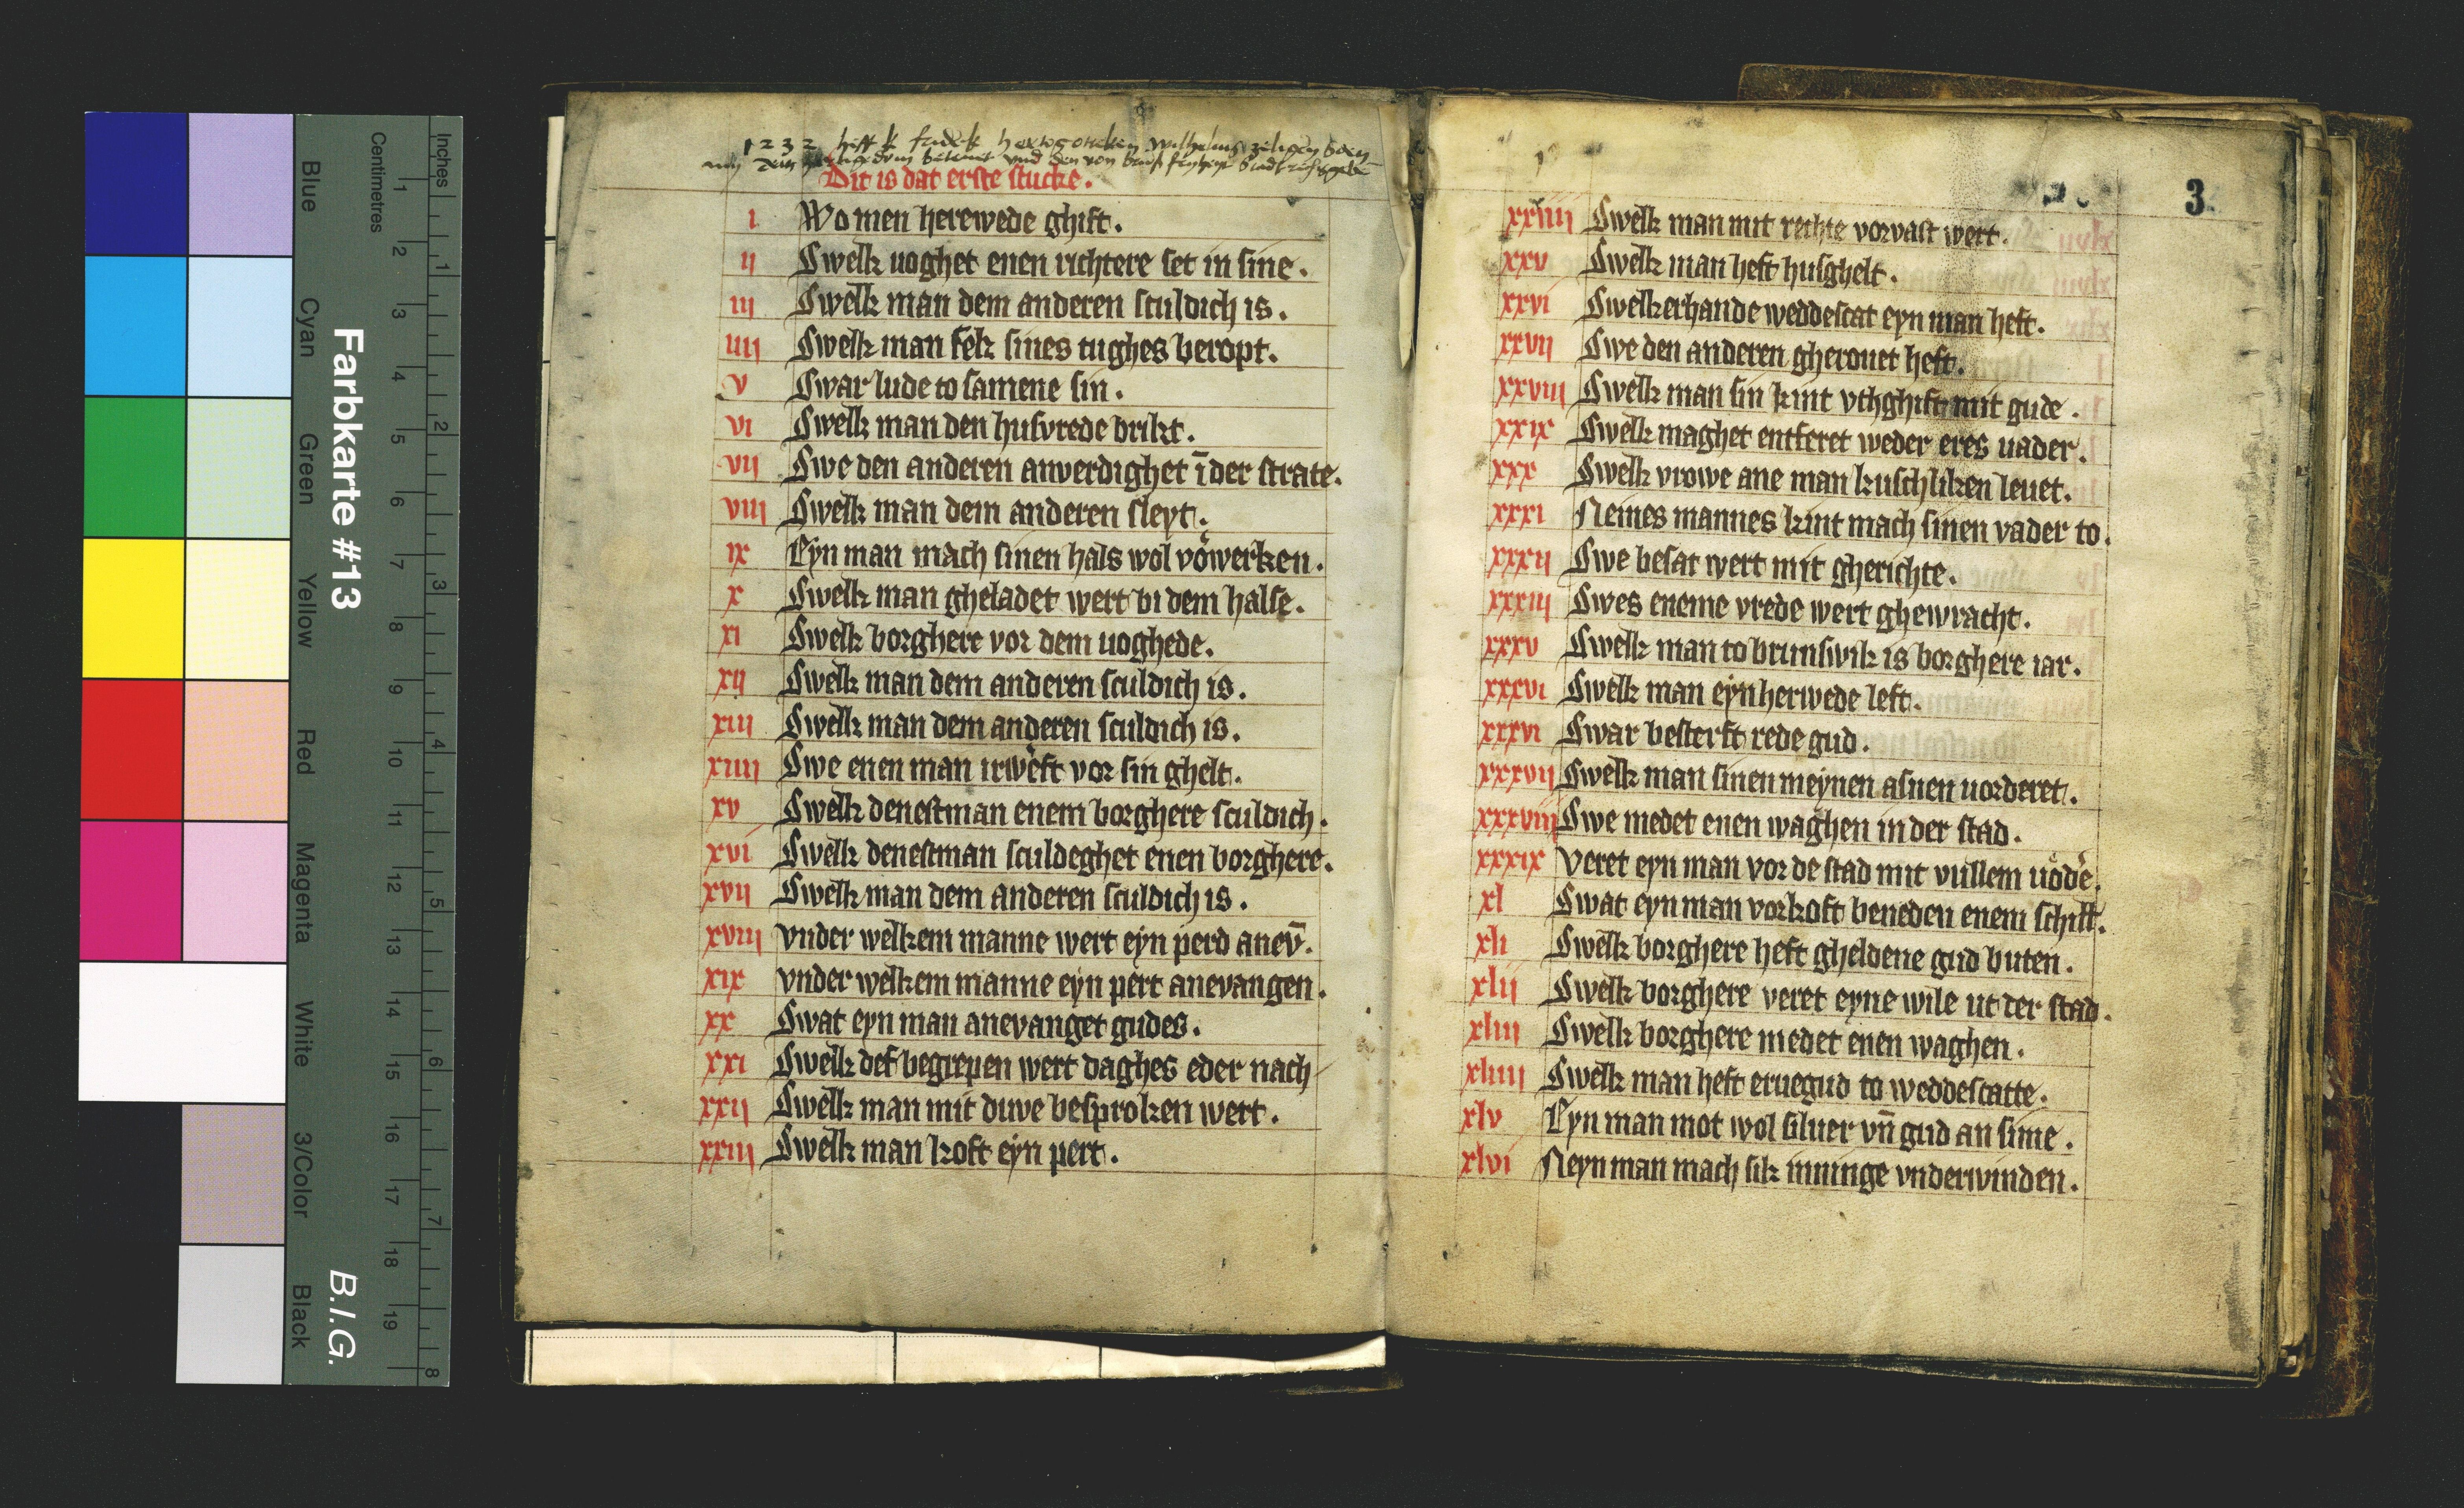 1232 hefft k fredek hertogen Wilhelms zeligen soen
Dit is dat erste stucke.
i Wo men herewede ghift.
ij Swelk uoghet enen richtere set in sine.
iij Swelk man dem anderen sculdich is.
iiij Swelk man sek sines tughes beropt.
v Swar lude to samene sin.
vi Swelk man den husvrede brikt.
vij Swe den anderen anverdighet ī der strate.
viij Swelk man dem anderen sleyt.
ix Eyn man mach sinen hals wol vorwerken.
x Swelk man gheladet wert bi dem halse.
xi Swelk borghere vor dem uoghede.
xij Swelk man dem anderen sculdich is.
xiij Swelk man dem anderen sculdich is.
xiiij Swe enen man irweft vor sin ghelt.
xv Swelk denestman enem borghere sculdich.
xvi Swelk denestman sculdeghet enen borghere.
xvij Swelk man dem anderen sculdich is.
xviij vnder welkem manne wert eyn perd anev̄.
xix vnder welkem manne eyn pert anevangen.
xx Swat eyn man anevanget gudes.
xxi Swelk def begrepen wert daghes eder nach
xxij Swelk man mit duve besproken wert.
xxiij Swelk man koft eyn pert.
3
xxiiij Swelk man mit rechte vorvast wert.
xxv Swelk man heft husghelt.
xxvi Swelkerhande weddescat eyn man heft.
xxvij Swe den anderen gherouet heft.
xxviij Swelk man sin kint vthghift mit gude.
xxix Swelk maghet entferet weder eres uader.
xxx Swelk vrowe ane man kuschliken leuet.
xxxi Nemes mannes kint mach sinen vader to.
xxxij Swe besat wert mit gherichte.
xxxiij Swes eneme vrede wert ghewracht.
xxxv Swelk man to brunswik is borghere iar.
xxxvi Swelk man eyn herwede left.
xxxvi Swar besterft rede gud.
xxxvij Swelk man sinen meynen asnen uorderet.
xxxviij Swe medet enen waghen in der stad.
xxxix veret eyn man vor de stad mit vullem uodere.
xl Swat eyn man vorkoft beneden enem schill.
xli Swelk borghere heft gheldene gud buten.
xlij Swelk borghere veret eyne wile ut der stad.
xliij Swelk borghere medet enen waghen.
xliiij Swelk man heft eruegud to weddescatte.
xlv Eyn man mot wol siluer vn̄ gud an sime.
xlvi Neyn man mach sik inninge vnderwinden.
Inches
Centimetres
1 2 3 4 5 6 7 8
1 2 3 4 5 6 7 8 9 10 11 12 13 14 15 16 17 18 19
Farbkarte #13
B.I.G.
Blue Cyan Green Yellow Red Magenta White 3/Color Black